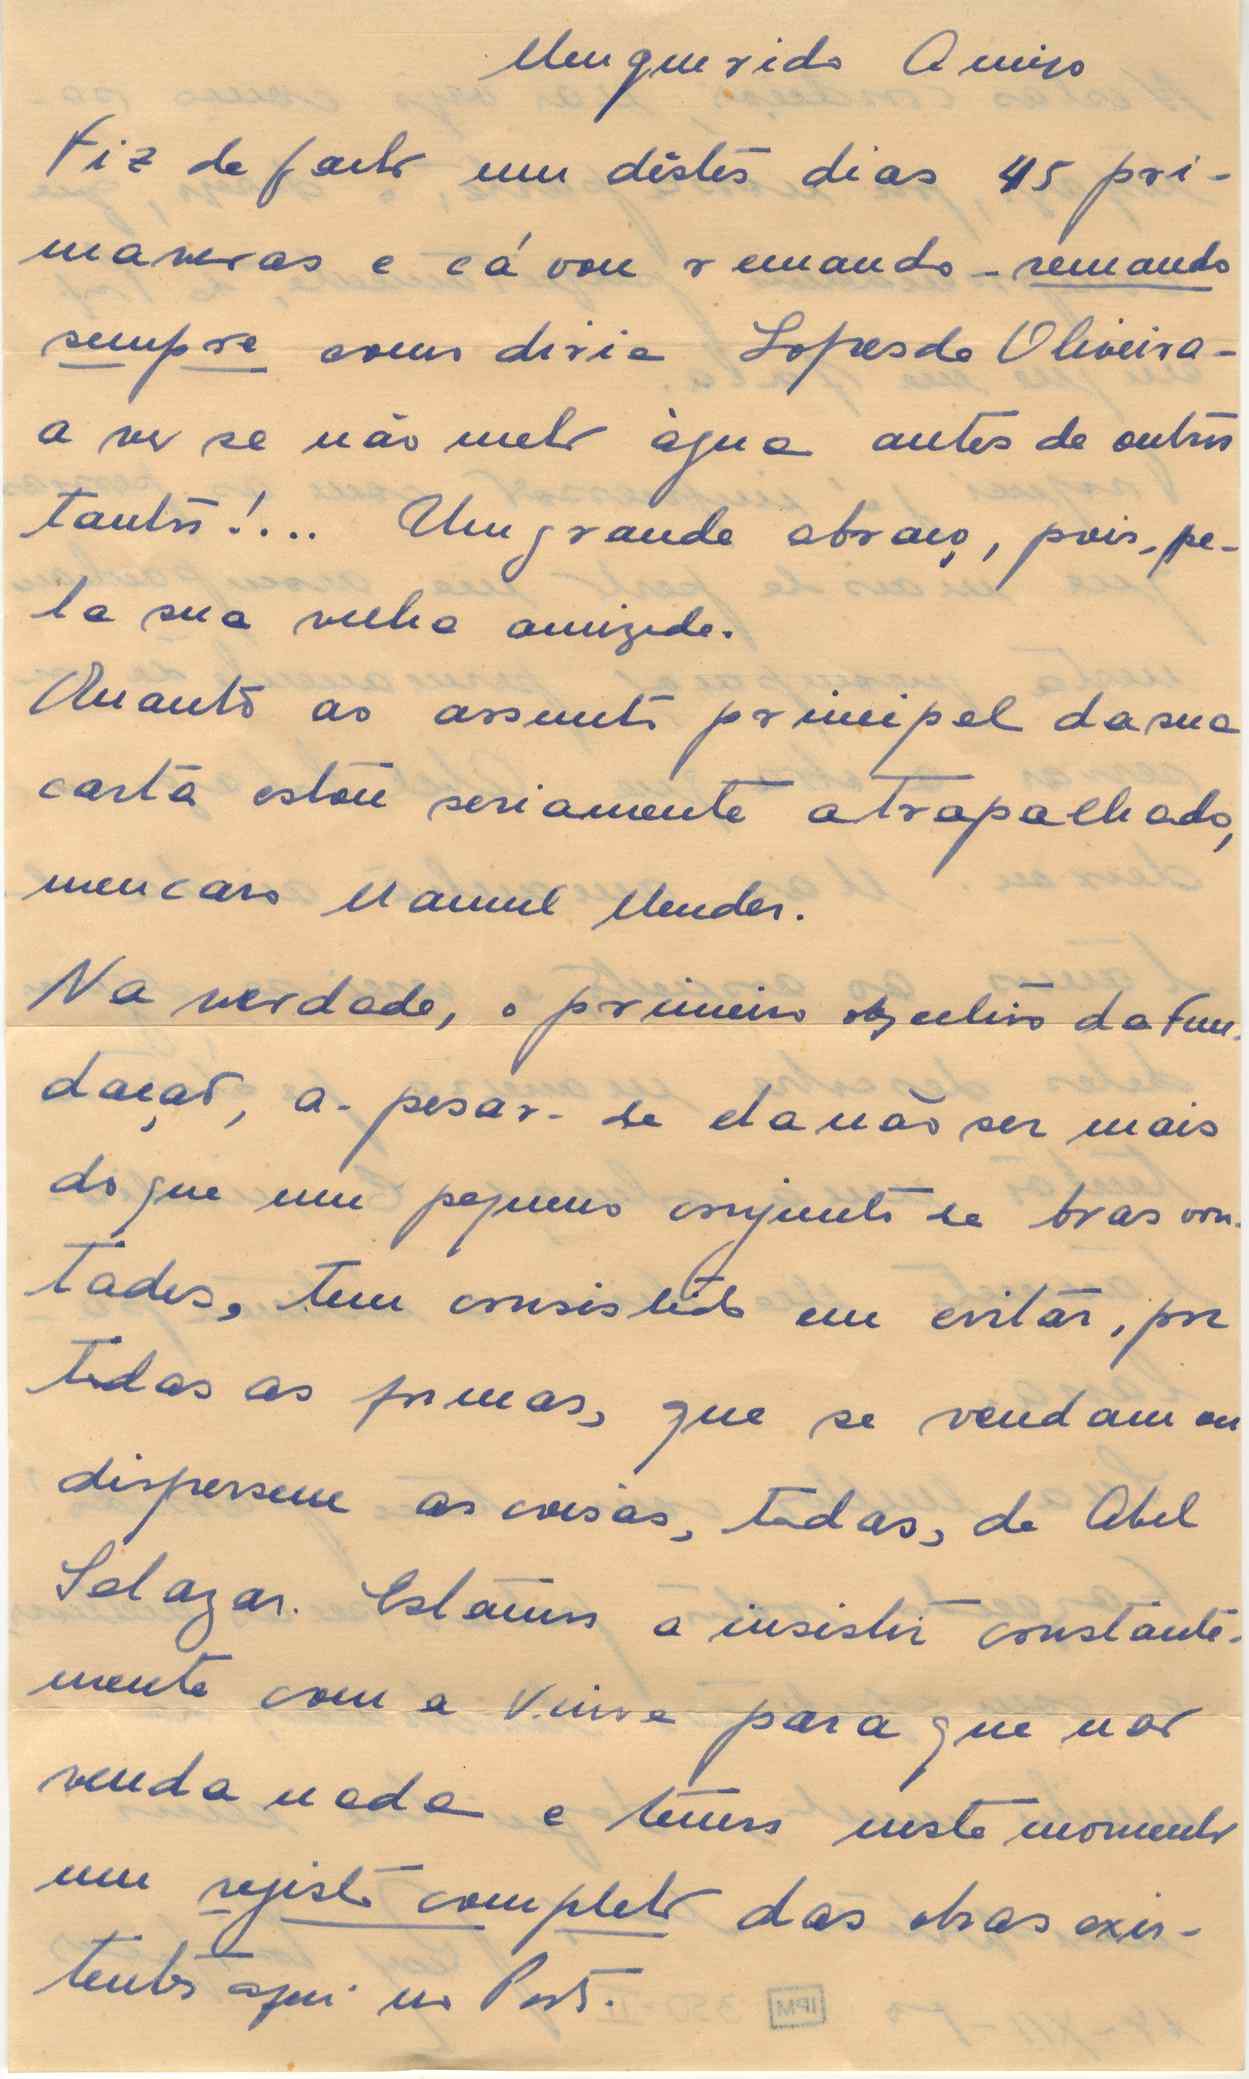 Meu querido Amigo
Fiz de facto um dêstes dias 45 pri-
maveras e cá vou remando - remando
sempre como diria Lopes de Oliveira -
a ver se não meto àgua antes de outros
tantos!... Um grande abraço, pois, pe-
la sua velha amizade.
Quanto ao assunto principal da sua
carta estou seriamente atrapalhado,
meu caro Manuel Mendes.
Na verdade, o primeiro objectivo da Fun-
dação, a-pesar-de ela não ser mais
do que um pequeno conjunto de boas von-
tades, tem consistido em evitar, por
todas as formas, que se vendam ou
dispersem as coisas, todas, de Abel
Salazar. Estamos a insistir constante-
mente com a Viuva para que não
venda nada e temos neste momento
um registo completo das obras exis-
tentes aqui no Porto.